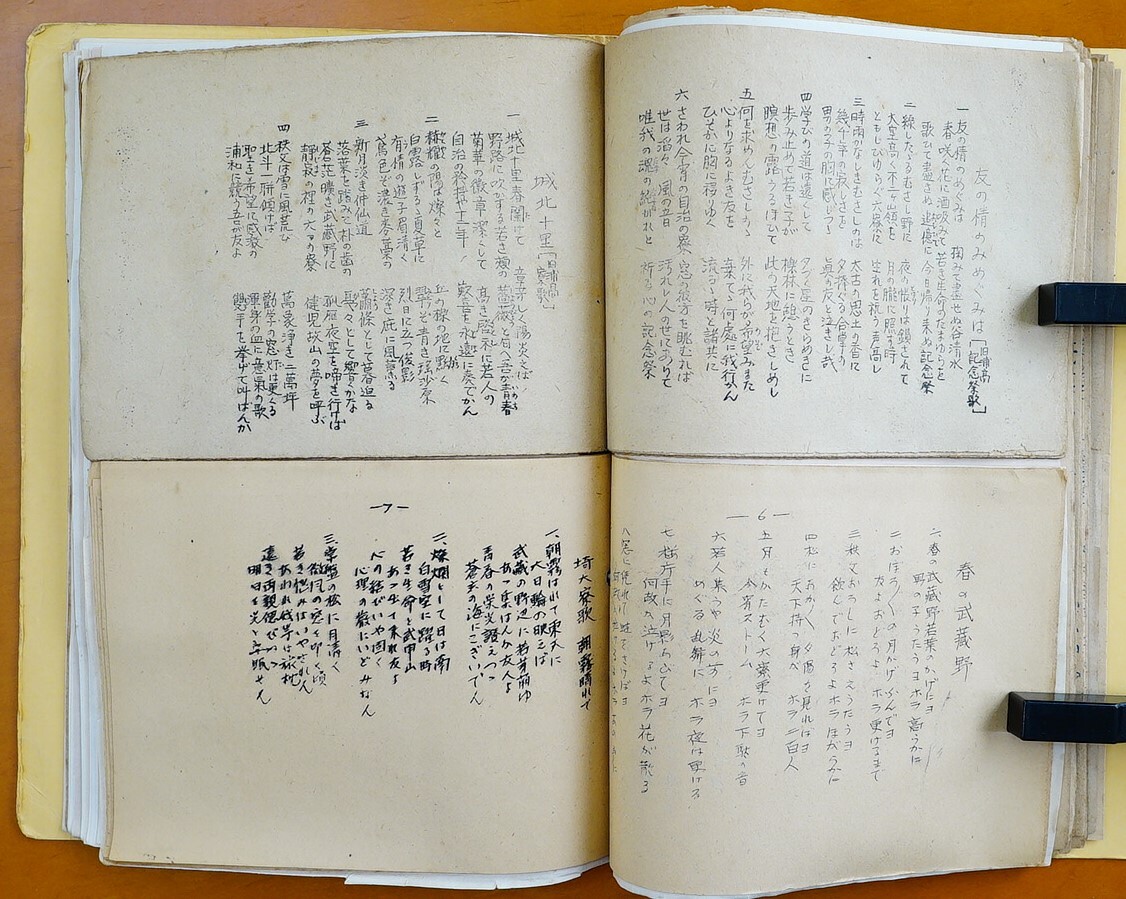 友の情のめぐみは [旧浦高 記念祭歌]
一 友の情のめぐみは 掬みて盡せぬ谷清水
春咲く花に酒吸みて 若き生命のたまゆらを
歌ひても盡きぬ追憶に 今日帰り来ぬ記念祭
二 緑したゝるむさし野に 夜の帳りは鎖されて
大空高く不二ヶ嶺を 月の朧に照す時
ともしびゆらぐ六寮に 生れを祝う声高し
三 時雨かなしきむさしのは 太古の思土の香に
幾千年の寂しさを 夕捧ぐる合掌の
男の子の胸に感じつゝ 眞の友と泣きし哉
四 学びの道は遠くして 夕づく星のきらめきに
歩み止めて若き子が 橡林に憩うとき
瞑想の露にうるほひて 此の天地を抱きしめし
五 何を求めんむさしのゝ 外に我らが希望みまた
心よりなるよき友を 棄てゝ何處に我行かん
ひそかに胸に移りゆく 流るゝ時と諸共に
六 さわれ今宵の自治の寮 窓の彼方を眺むれば
世は滔々の風の音 汚れし人の世にありて
唯我の魂の純かれと 祈る心の記念祭
城北十里 [旧浦高 寮歌]
一 城北十里春闌けて 章芽しく陽炎えば
野路に吹かする若き頬の 薔薇の匂へる吾が青春
菊華の徽章深くして 高き啓示に若人の
自治の殿堂十二年 歓喜を永遠に奏でかん
二 縦横の陽は燦々と 丘の線の地に點く
白露しずるゝ夏草に 靜けき青き瑤沙原
有情の遊子眉清く 烈日に立つ俊影
大鳶色そ濃き木の葉の 深き庇に風薫る
三 新月淡き仲仙道 蕭條として暮迫る
落葉を踏みて朴の歯の 戞々として響くかな
蒼茫曠き武蔵野に 孤雁夜空を啼き行けば
靜寂の裡の六つの寮 健児故山の夢を呼ぶ
四 秩父は雪に風荒び 萬象凈き二萬坪
北斗一屏傾けば 勸学の窓灯は更くる
聖き希望に感激の 渾身の血に意氣の歌
浦和に競う吾が友よ 双手を挙げて叫ばんか
―6―
春の武蔵野
一、春の武蔵野若葉のかげにヨ
男の子うたうヨホラ高らかに
二 おぼろ／＼の月かげふんでヨ
友よおどろよ ホラ更けるまで
三 秩父おろしに松さえうたうヨ
歓んでおどろよホラほがらかに
四 松にあか／＼夕陽を見ればヨ
天下持つ身ぞ ホラ二百人
五 月もかたむく大寮更けてヨ
今宵ストーム ホラ下駄の音
六 若人集うや炎の前にヨ
めぐる乱舞に ホラ夜は更ける
七 桜片手に月影あびてヨ
何故か泣けるよホラ花が散る
―7―
埼大寮歌 朝霧晴れて
一、朝霧はれて東天に
大日輪の映えば
武蔵の野辺に若芽萌ゆ
あゝ呼ばんか友人よ
青春の栄光讃えつつ
蒼穹の海にこぎいでん
二、燦爛として日は南
白雪空に躍る時
若き生命と武甲山
あゝ出で来れ友よ
心の結びいや固く
心理の巌にいどみなん
三、常盤の松に月清く
微風の窓を叩く頃
若き悩みはいやされん
あわれ我等は旅枕
遠き両親偲びつつ
明日を光と立眠せん